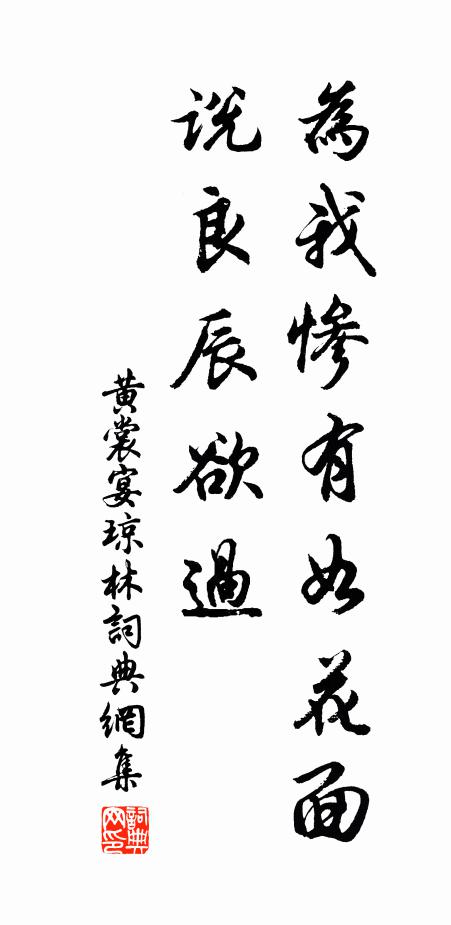 為我慘有如花面
說良辰欲過
黃裳宴瓊林詞典網集
詞典網印